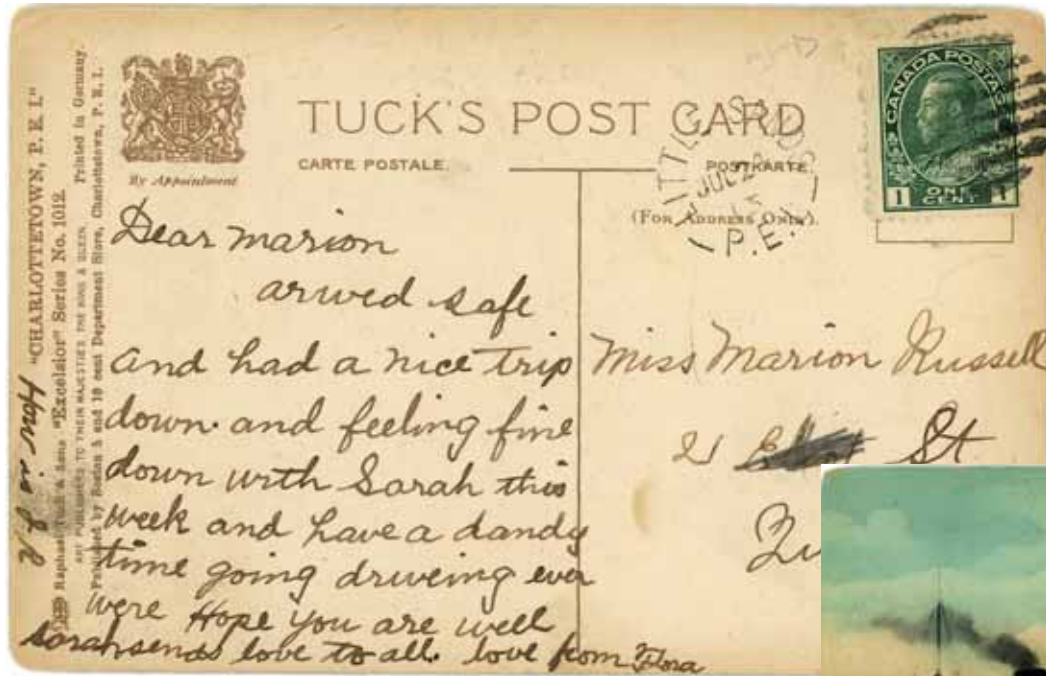 "CHARLOTTETOWN, P. E. I."
Raphael Tuck & Sons "Excelsior" Series No. 1012.
ART PUBLISHERS TO THEIR MAJESTIES THE KING & QUEEN. Printed in Germany.
Published by Boston 5 and 10 cent Department Store, Charlottetown, P. E. I.
By Appointment
TUCK'S POST CARD
CARTE POSTALE.
POSTKARTE.
(FOR ADDRESS ONLY).
LITTLE SANDS
JUL 2
P.E.I.
CANADA POSTAGE
1 ONE CENT 1
Dear Marion
arived safe
and had a nice trip
down and feeling fine
down with Sarah this
week and have a dandy
time going driveing ever
were Hope you are well
Sarah sends love to all. love from Flora
How is
Miss Marion Russell
21 St